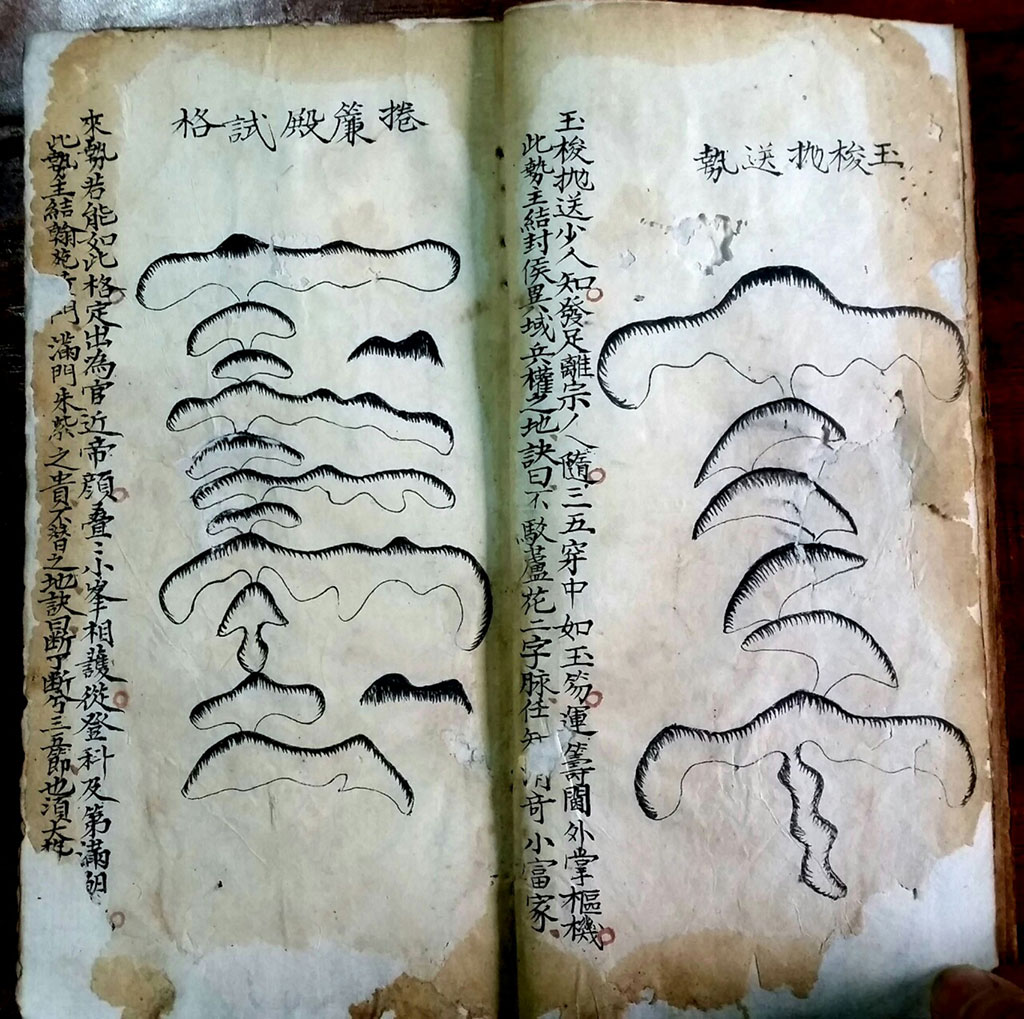 玉梭抛送勢
玉梭抛送少人知發足離宗隨三五穿中如玉笏運籌閫外掌樞機
此勢主結封侯異域兵權之地訣曰不蘆花二字脉任知奇小富家
捲簾殿試格
來勢若能如此格定出為官近帝顔叠小峯相護從登科及第滿朝
此勢主結翰門滿門朱紫之貴不替之地訣曰斷了斷兮三五節也須大